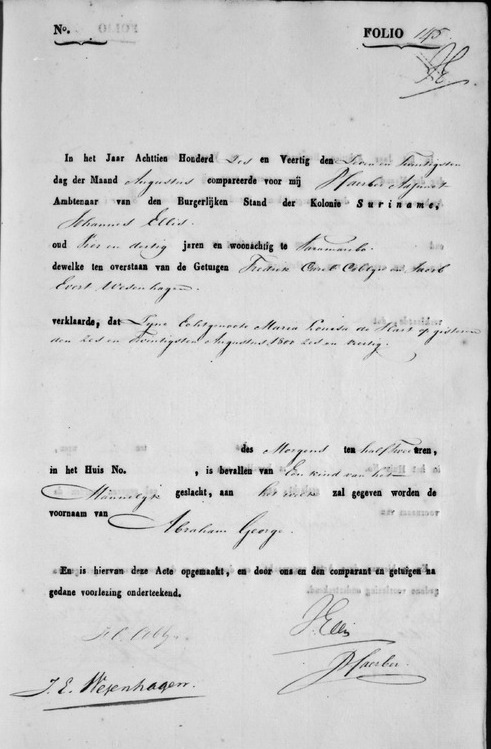 No. FOLIO 145.
In het Jaar Achttien Honderd Zes en Veertig den Zeven en Twintigsten
dag der Maand Augustus compareerde voor mij Adjunct
Ambtenaar van den Burgerlijken Stand der Kolonie Suriname,
Johannes Ellis.
oud Vier en dertig jaren en woonachtig te Paramaribo
dewelke ten overstaan van de Getuigen Fredrik Coreth Colbye en Jacob
Evert Wesenhagen.
verklaarde, dat Zyne Echtgenoote Maria Louisa de Hart op gisteren
den zes en twintigsten Augustus 1800 zes en veertig.
des Morgens ten half Twee uren,
in het Huis No. , is bevallen van Een kind van het
Mannelyk geslacht, aan het welk zal gegeven worden de
voornaam van
Abraham George.
En is hiervan deze Acte opgemaakt, en door ons en den comparant en getuigen na
gedane voorlezing onderteekend.
J Ellis
J. E. Wesenhagen.